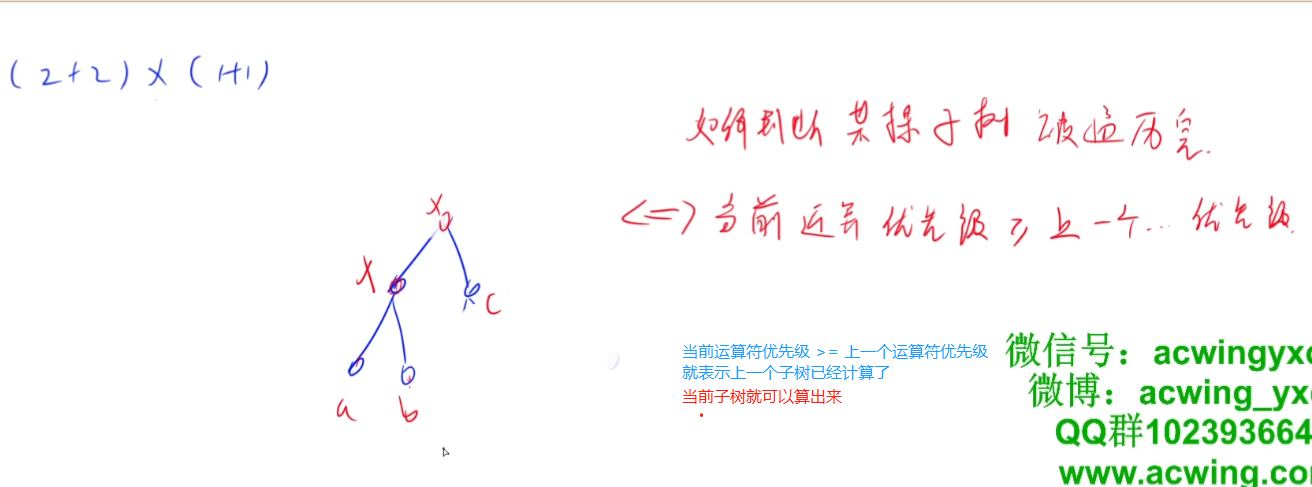 (2+2)×(1+1)
如何判断某棵子树被遍历完.
<=>当前运算优先级≥上一个...优先级
×
×
c
a
b
当前运算符优先级 >= 上一个运算符优先级
就表示上一个子树已经计算了
当前子树就可以算出来
微信号：acwingyxc
微博：acwing_yx
QQ群102393664
www.acwing.co